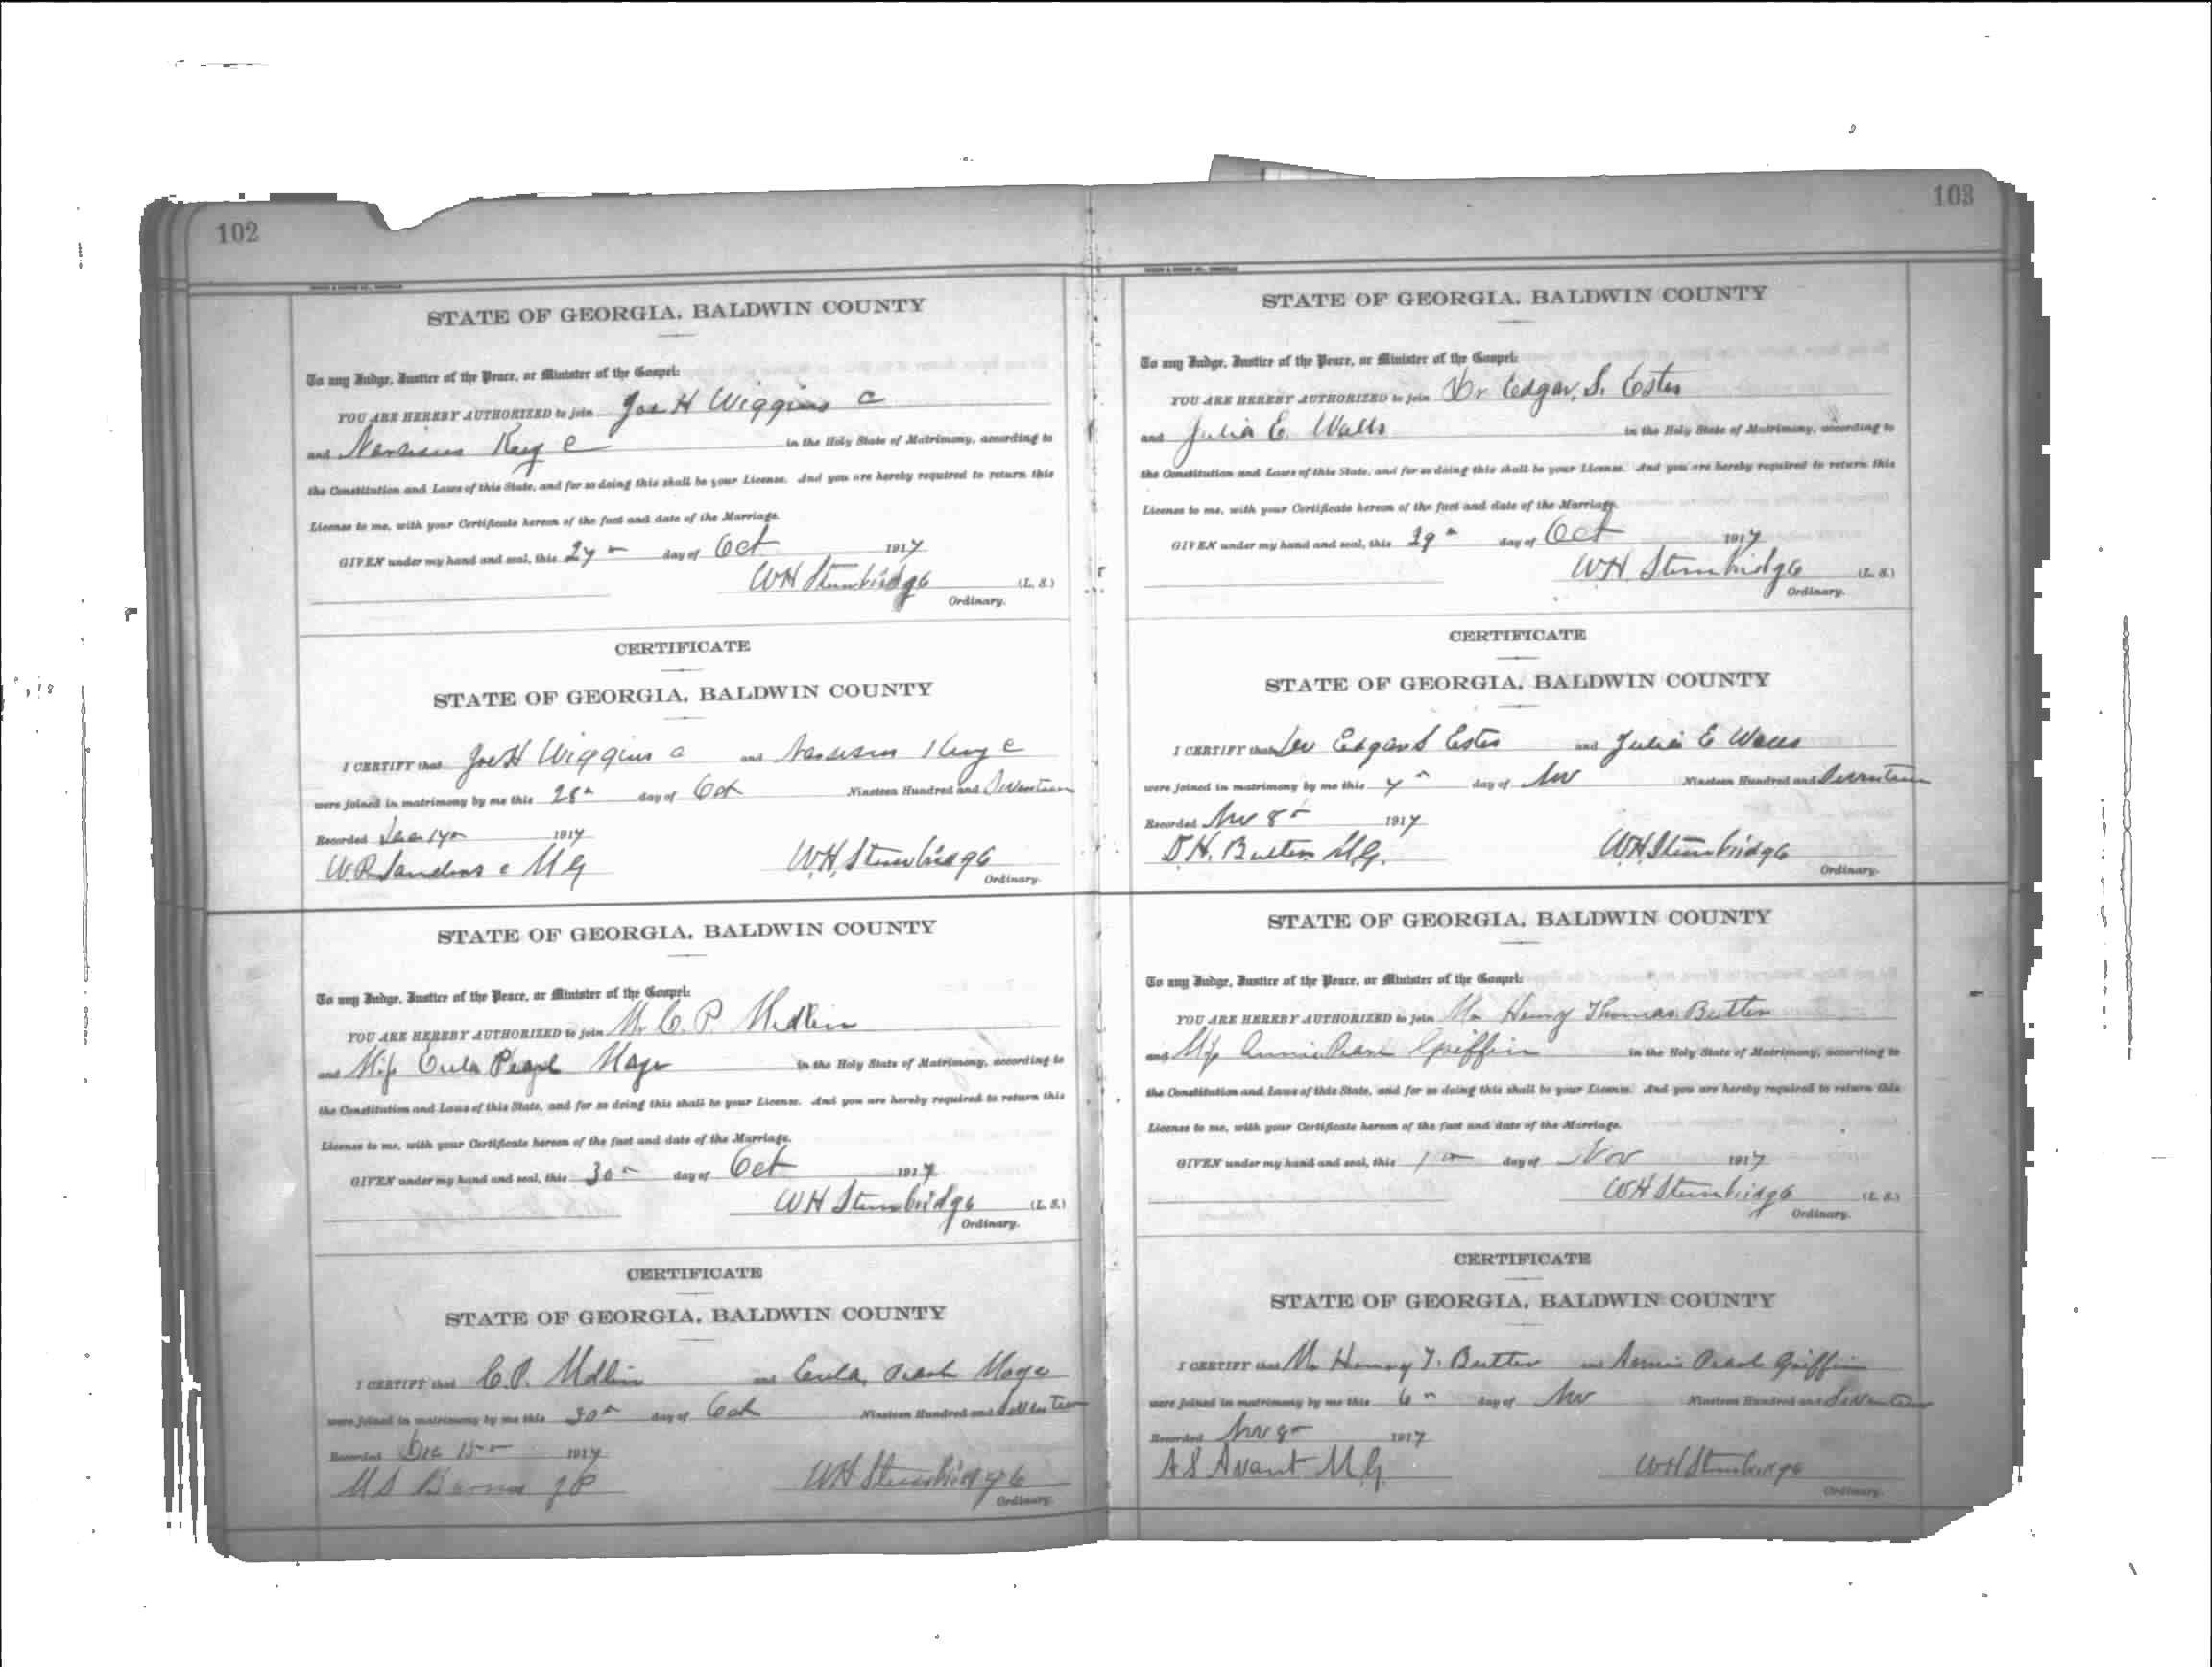 102
STATE OF GEORGIA, BALDWIN COUNTY
To any Judge, Justice of the Peace, or Minister of the Gospel:
YOU ARE HEREBY AUTHORIZED to join Joe H Wiggins c
and Key c in the Holy State of Matrimony, according to
the Constitution and Laws of this State, and for so doing this shall be your License. And you are hereby required to return this
License to me, with your Certificate hereon of the fact and date of the Marriage.
GIVEN under my hand and seal, this 27 day of Oct 1917
WH Stembridge (L. S.)
Ordinary.
CERTIFICATE
STATE OF GEORGIA, BALDWIN COUNTY
I CERTIFY that Joe H Wiggins c and Key c
were joined in matrimony by me this 28 day of Oct Nineteen Hundred and Seventeen
Recorded 1917
W.R. Sanders c M G W.H. Stembridge
Ordinary.
STATE OF GEORGIA, BALDWIN COUNTY
To any Judge, Justice of the Peace, or Minister of the Gospel:
YOU ARE HEREBY AUTHORIZED to join Mr C. P. Medlin
and Miss Eula Pearl in the Holy State of Matrimony, according to
the Constitution and Laws of this State, and for so doing this shall be your License. And you are hereby required to return this
License to me, with your Certificate hereon of the fact and date of the Marriage.
GIVEN under my hand and seal, this 30 day of Oct 1917
WH Stembridge (L. S.)
Ordinary.
CERTIFICATE
STATE OF GEORGIA, BALDWIN COUNTY
I CERTIFY that C.P. Medlin and Eula Pearl
were joined in matrimony by me this 30 day of Oct Nineteen Hundred and Seventeen
Recorded Dec 15 1917
J P WH Stembridge
Ordinary.
103
STATE OF GEORGIA, BALDWIN COUNTY
To any Judge, Justice of the Peace, or Minister of the Gospel:
YOU ARE HEREBY AUTHORIZED to join Dr Edgar S. Estes
and Julia E. Walls in the Holy State of Matrimony, according to
the Constitution and Laws of this State, and for so doing this shall be your License. And you are hereby required to return this
License to me, with your Certificate hereon of the fact and date of the Marriage.
GIVEN under my hand and seal, this 29 day of Oct 1917
W.H. Stembridge (L. S.)
Ordinary.
CERTIFICATE
STATE OF GEORGIA, BALDWIN COUNTY
I CERTIFY that Edgar S Estes and Julia E Walls
were joined in matrimony by me this 7 day of Nov Nineteen Hundred and Seventeen
Recorded Nov 8 1917
M.G. W.H. Stembridge
Ordinary.
STATE OF GEORGIA, BALDWIN COUNTY
To any Judge, Justice of the Peace, or Minister of the Gospel:
YOU ARE HEREBY AUTHORIZED to join Mr Henry Thomas Butler
and Miss Annie Pearl Griffin in the Holy State of Matrimony, according to
the Constitution and Laws of this State, and for so doing this shall be your License. And you are hereby required to return this
License to me, with your Certificate hereon of the fact and date of the Marriage.
GIVEN under my hand and seal, this 1 day of Nov 1917
WH Stembridge (L. S.)
Ordinary.
CERTIFICATE
STATE OF GEORGIA, BALDWIN COUNTY
I CERTIFY that Mr Henry T. Butler and Annie Pearl Griffin
were joined in matrimony by me this 6 day of Nov Nineteen Hundred and Seventeen
Recorded Nov 8 1917
A S Avant M.G. WH Stembridge
Ordinary.